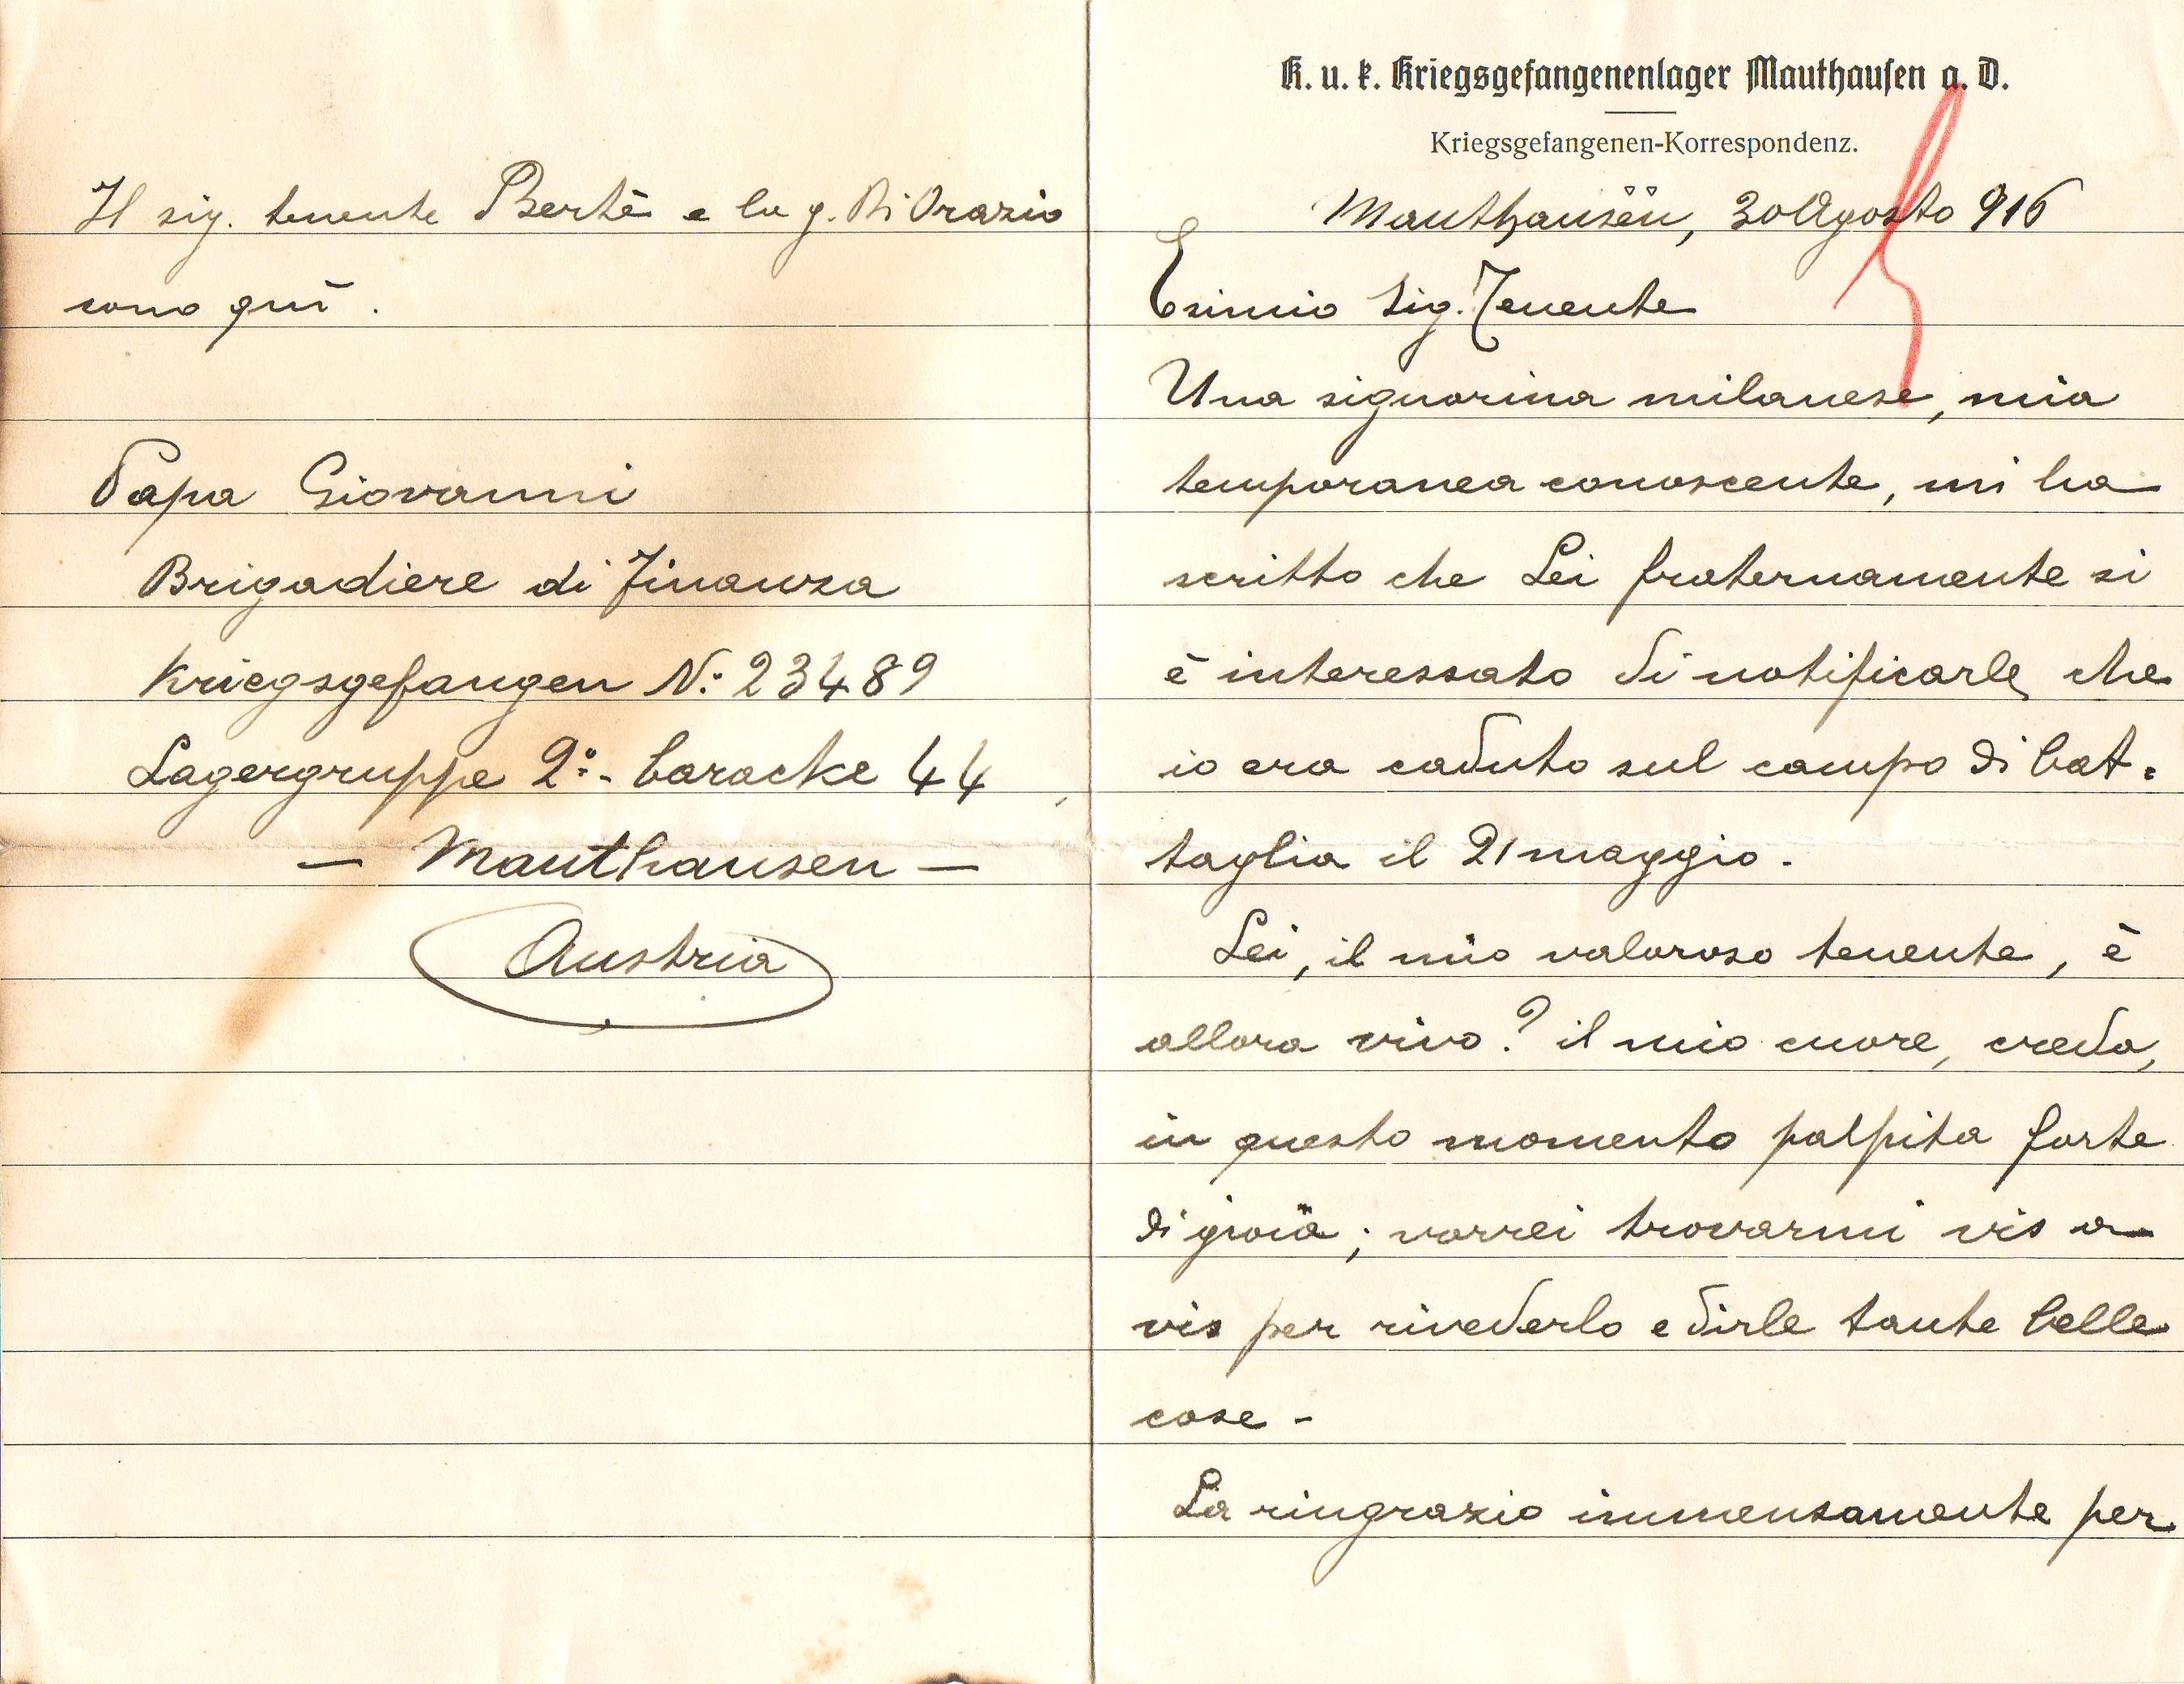 Il sig. tenente Bertè e la g. Di Orazio
sono quì.
Papa Giovanni
Brigadiere di Finanza
Kriegsgefangen N: 23489
Lagergruppe 2° - baracke 44
— Mauthausen —
Austria
K. u. k. Kriegsgefangenenlager Mauthausen a. D.
Kriegsgefangenen-Korrespondenz.
Mauthausen, 30 Agosto 916
Esimio Sig. Tenente
Una signorina milanese, mia
temporanea conoscente, mi ha
scritto che Lei fraternamente si
è interessato di notificarle che
io era caduto sul campo di bat=
taglia il 21 maggio.
Lei, il mio valoroso tenente, è
allora vivo? il mio cuore, creda,
in questo momento palpita forte
di gioia; vorrei trovarmi vis a
vis per rivederlo e dirle tante belle
cose -
La ringrazio immensamente per